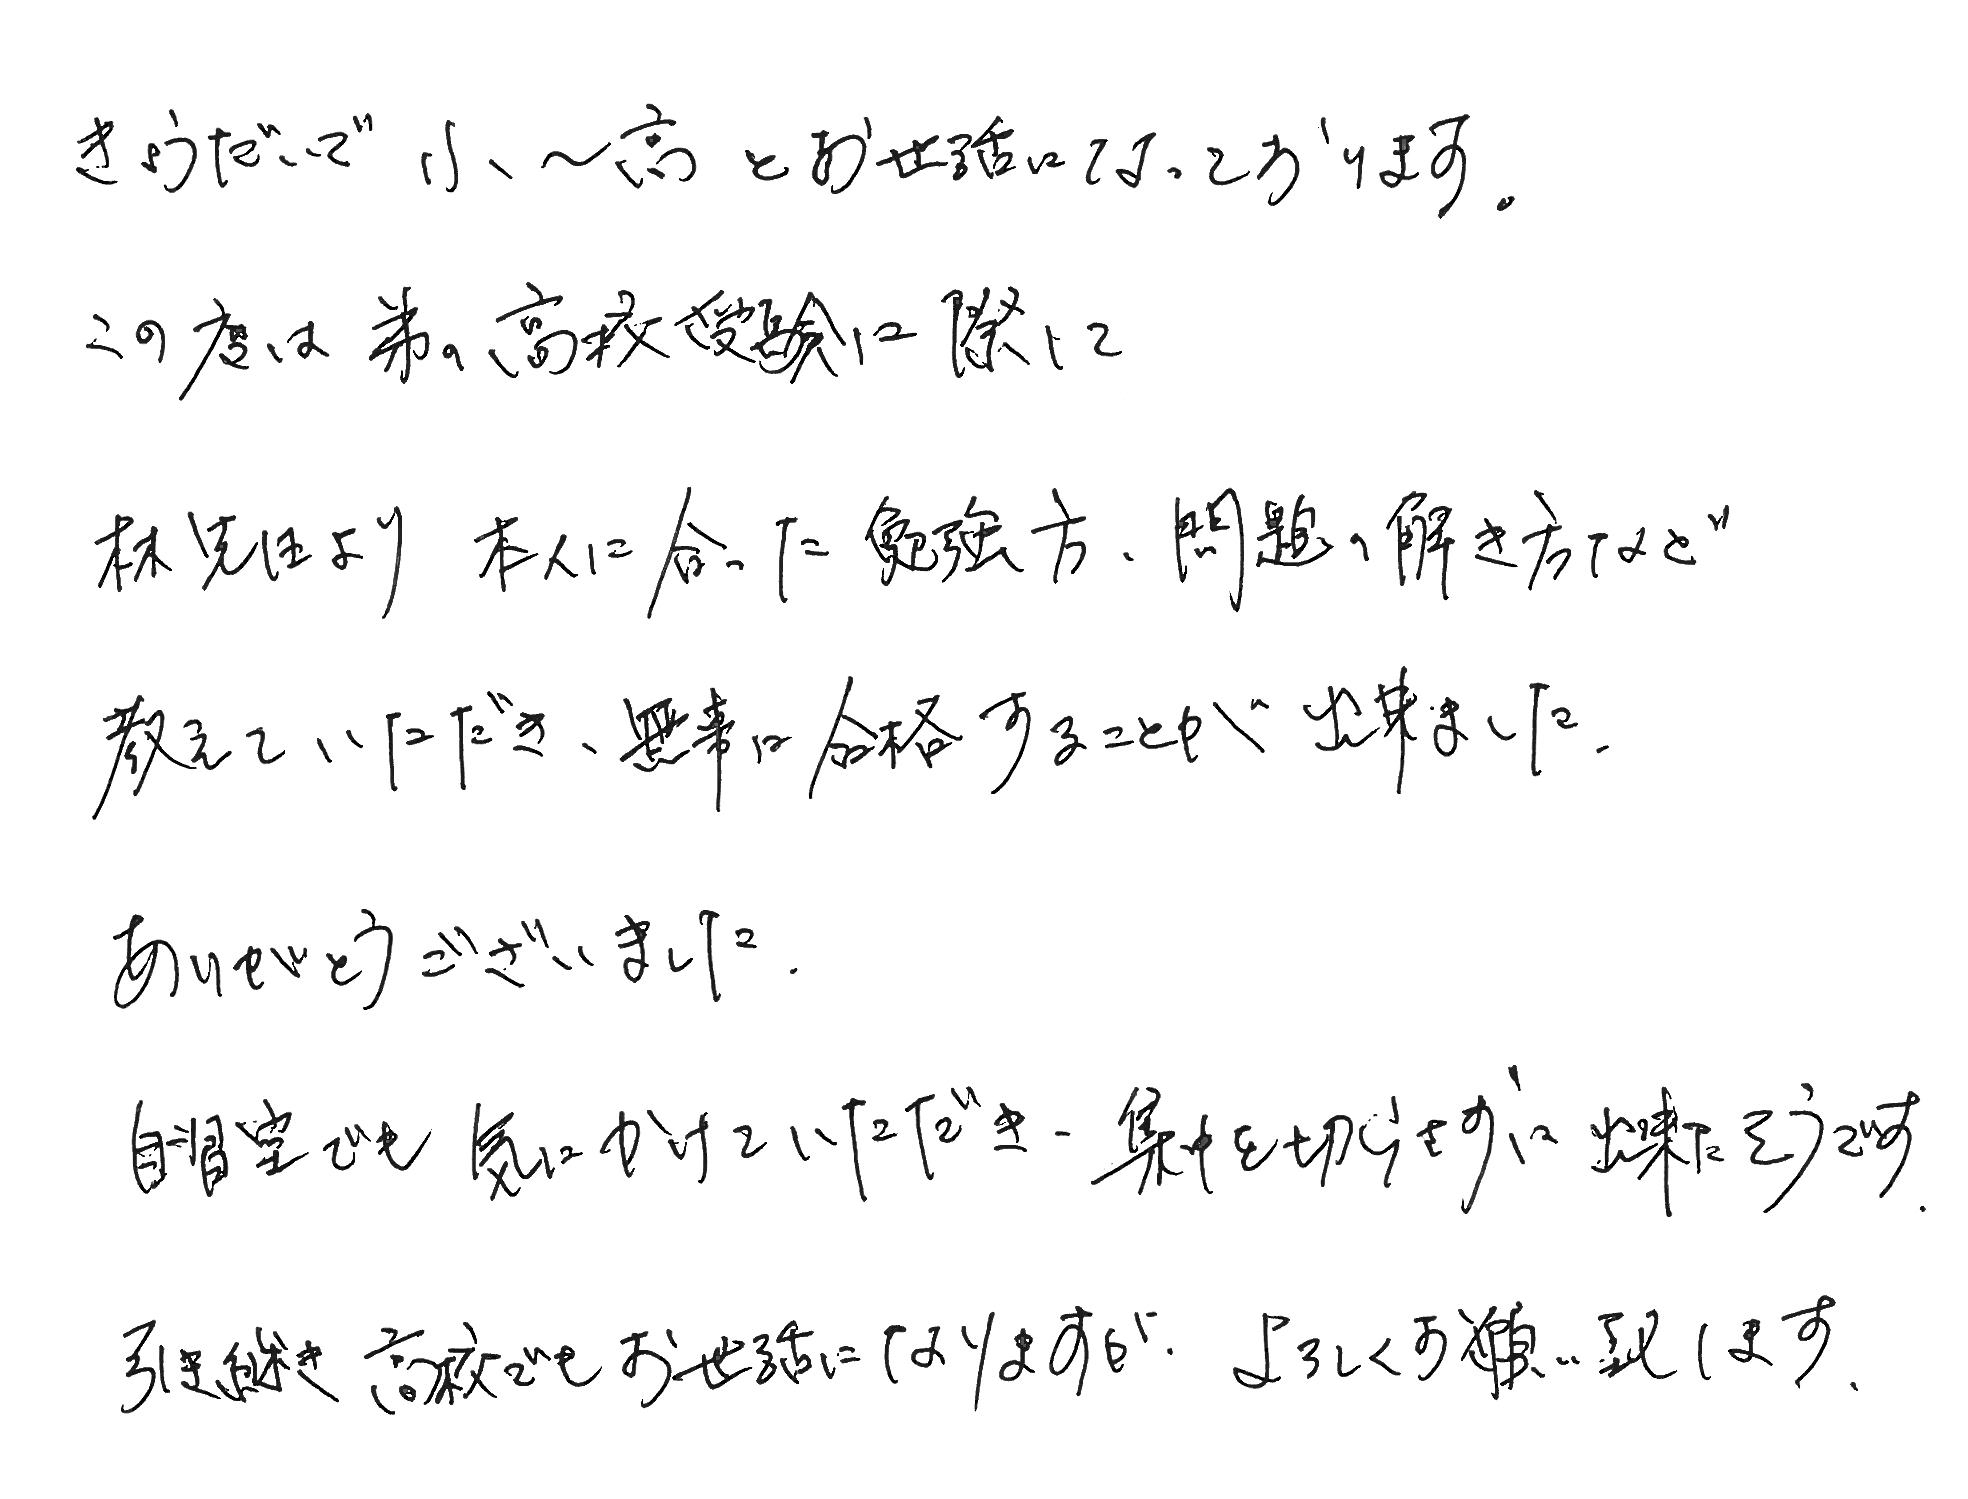 きょうだいで 小、〜高 とお世話になっております。
この度は 弟の 高校受験に際して
林先生より 本人に合った 勉強方、問題の解き方など
教えていただき、無事に合格することが 出来ました.
ありがとうございました.
自習室でも 気にかけていただき、集中を切らせずに 出来たそうです.
引き継き 高校でもお世話になりますが、よろしくお願い致します.